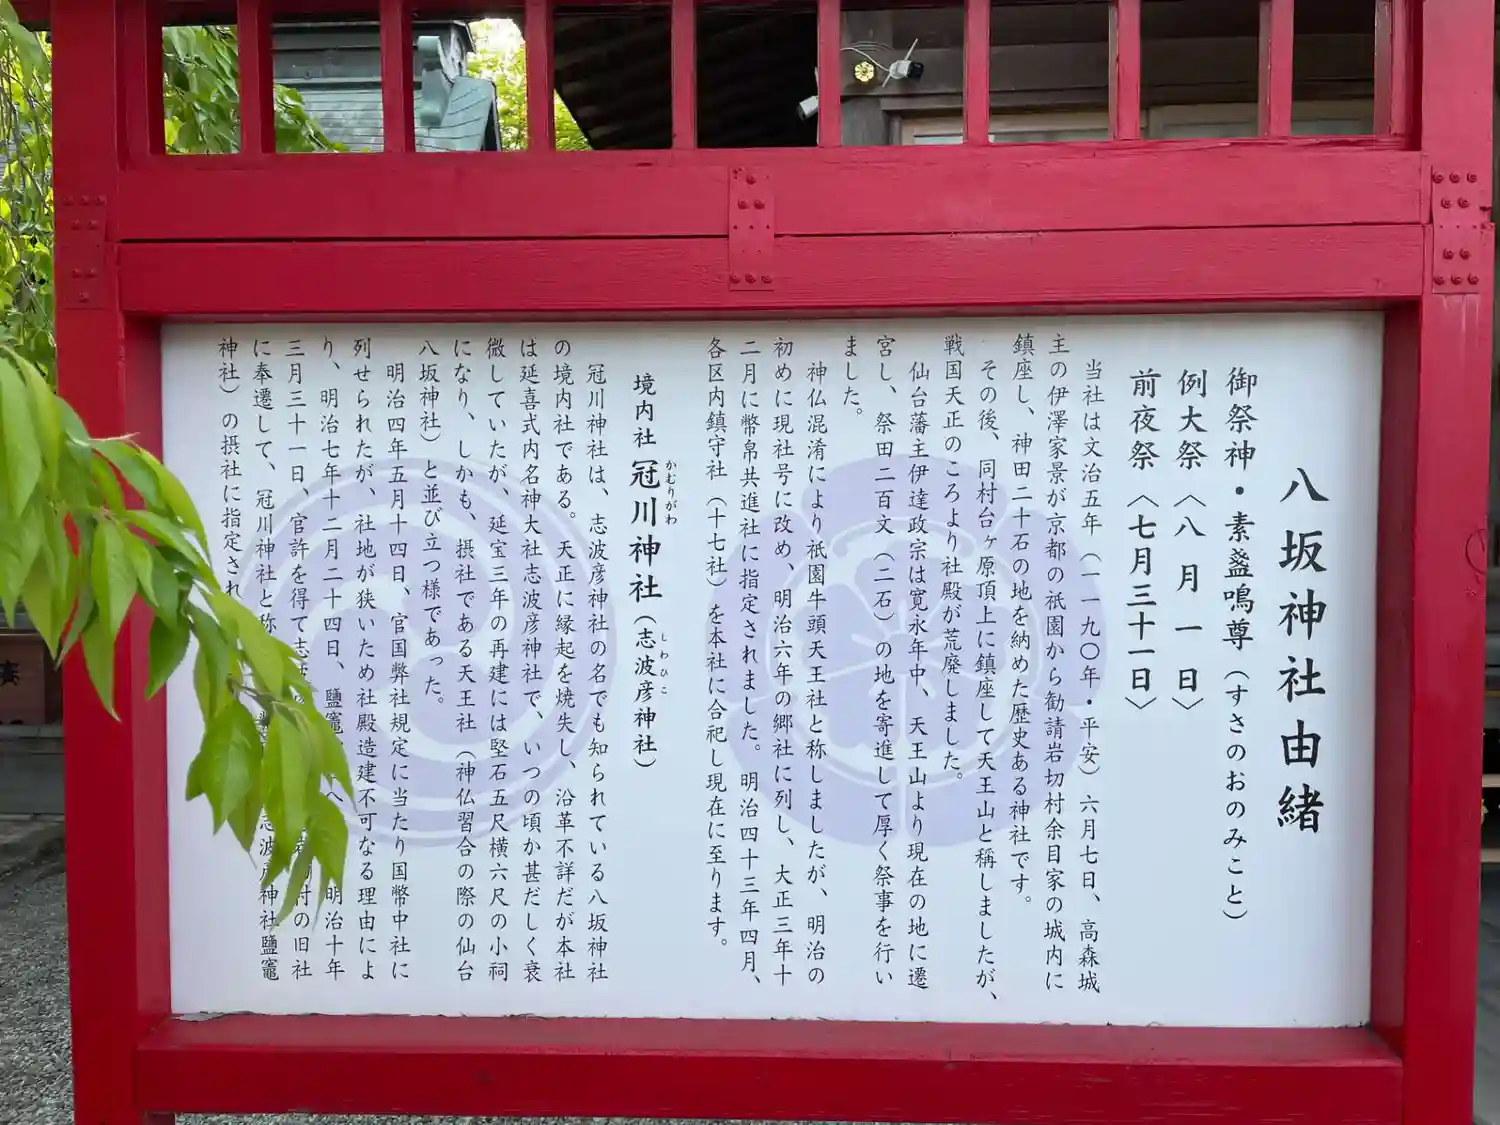 八坂神社由緒
御祭神・素盞鳴尊(すさのおのみこと)
例大祭〈八月一日〉
前夜祭〈七月三十一日〉
当社は文治五年(一一九〇年・平安)六月七日、高森城
主の伊澤家景が京都の祇園から勧請岩切村余目家の城内に
鎮座し、神田二十石の地を納めた歴史ある神社です。
その後、同村台ヶ原頂上に鎮座して天王山と稱しましたが、
戦国天正のころより社殿が荒廃しました。
仙台藩主伊達政宗は寛永年中、天王山より現在の地に遷
宮し、祭田二百文(二石)の地を寄進して厚く祭事を行い
ました。
神仏混淆により祇園牛頭天王社と称しましたが、明治の
初めに現社号に改め、明治六年の郷社に列し、大正三年十
二月に幣帛共進社に指定されました。明治四十三年四月、
各区内鎮守社(十七社)を本社に合祀し現在に至ります。
境内社 冠川神社(志波彦神社)
かむりがわ
しわひこ
冠川神社は、志波彦神社の名でも知られている八坂神社
の境内社である。天正に縁起を焼失し、沿革不詳だが本社
は延喜式内名神大社志波彦神社で、いつの頃か甚だしく衰
微していたが、延宝三年の再建には堅石五尺横六尺の小祠
になり、しかも、摂社である天王社(神仏習合の際の仙台
八坂神社)と並び立つ様であった。
明治四年五月十四日、官国弊社規定に当たり国幣中社に
列せられたが、社地が狭いため社殿造建不可なる理由によ
り、明治七年十二月二十四日、鹽竈 へ 明治十年
三月三十一日、官許を得て志波 村の旧社
に奉遷して、冠川神社と称 志波彦神社鹽竈
神社)の摂社に指定され